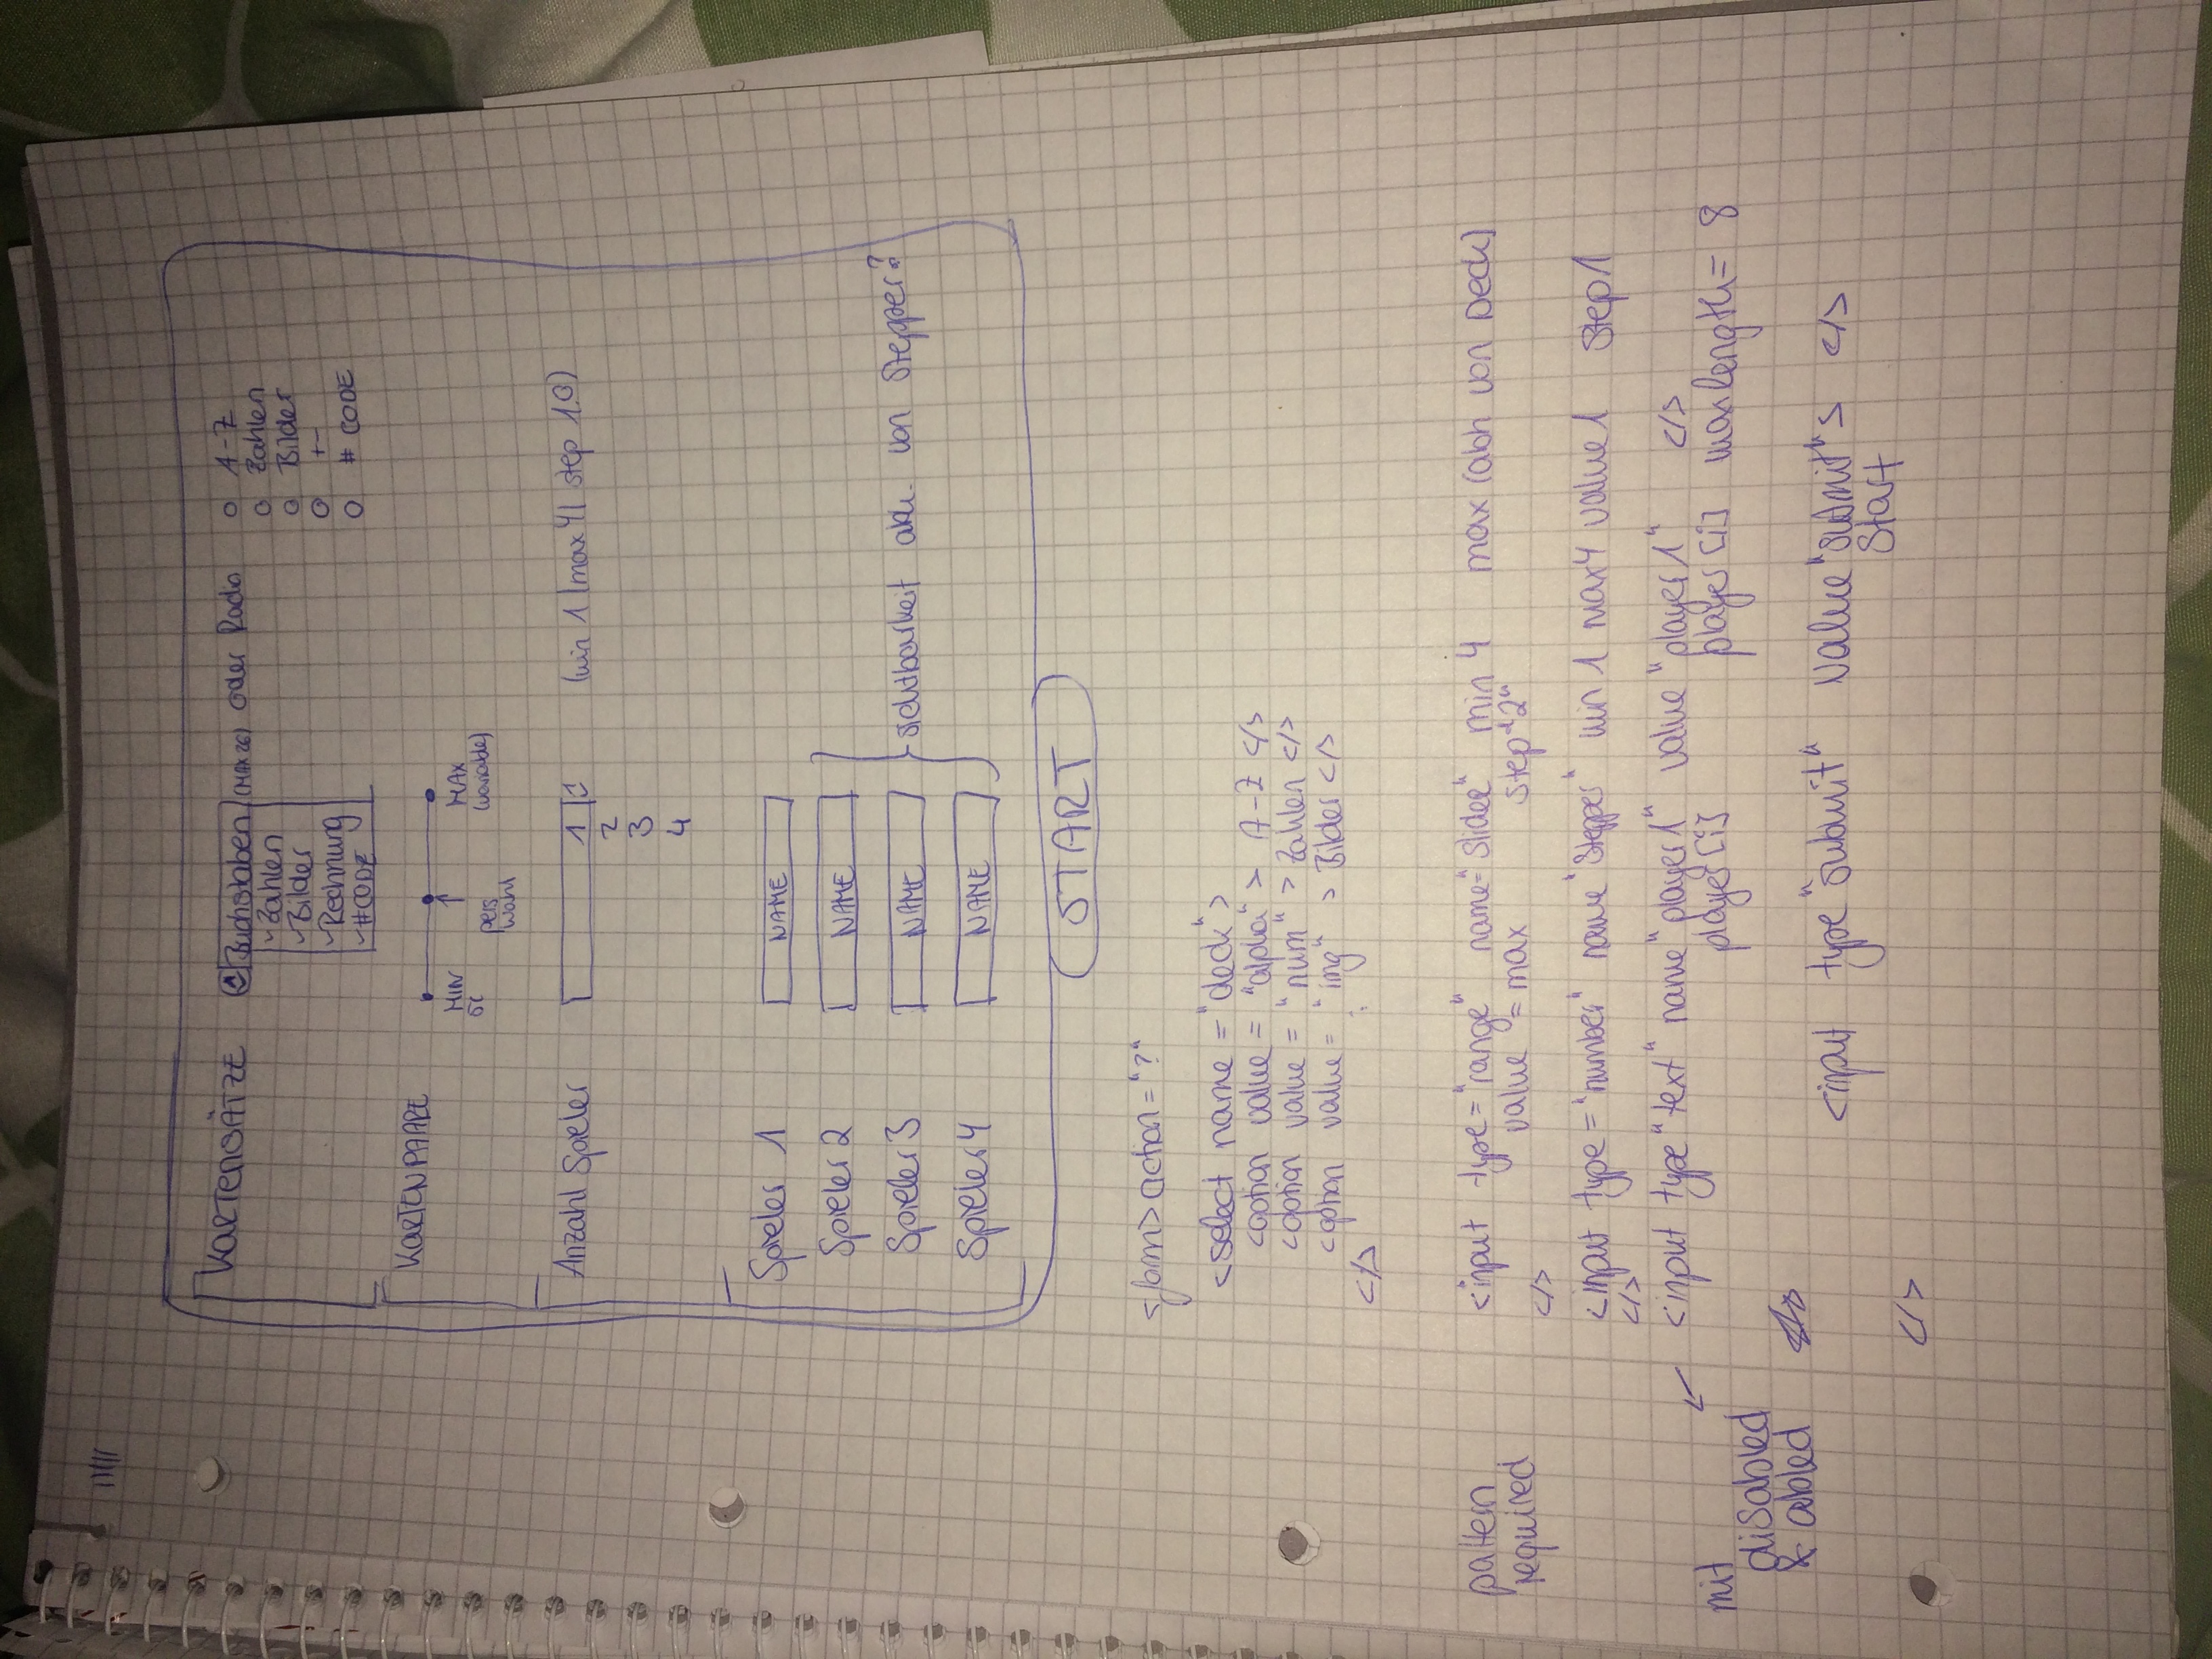 KARTENSÄTZE Buchstaben (MAX 26) oder Radio ○ A-Z
- Zahlen ○ Zahlen
- Bilder ○ Bilder
- Rechnung ○ +-
- #CODE ○ # CODE
KARTENPAARE
MIN MAX
pers (variable)
Wahl
Anzahl Spieler 1 (min 1 | max 4 | step 1.0)
2
3
4
Spieler 1 NAME
Spieler 2 NAME
Spieler 3 NAME sichtbarkeit abh. von Stepper?
Spieler 4 NAME
START
<form> action = "?"
<select name = "deck">
<option value = "alpha" > A-Z </>
<option value = "num" > Zahlen </>
<option value = "img" > Bilder </>
</>
pattern <input type = "range" name = "Slider" min 4 max (abh von Deck)
required value = max step "2"
</>
<input type = "number" name "Stepper" min 1 max 4 value 1 step 1
</>
<input type "text" name "player 1" value "player 1" </>
mit player [i] player [i] maxlength = 8
disabled
& abled
<input type "submit" value "submit" > </>
Start
</>